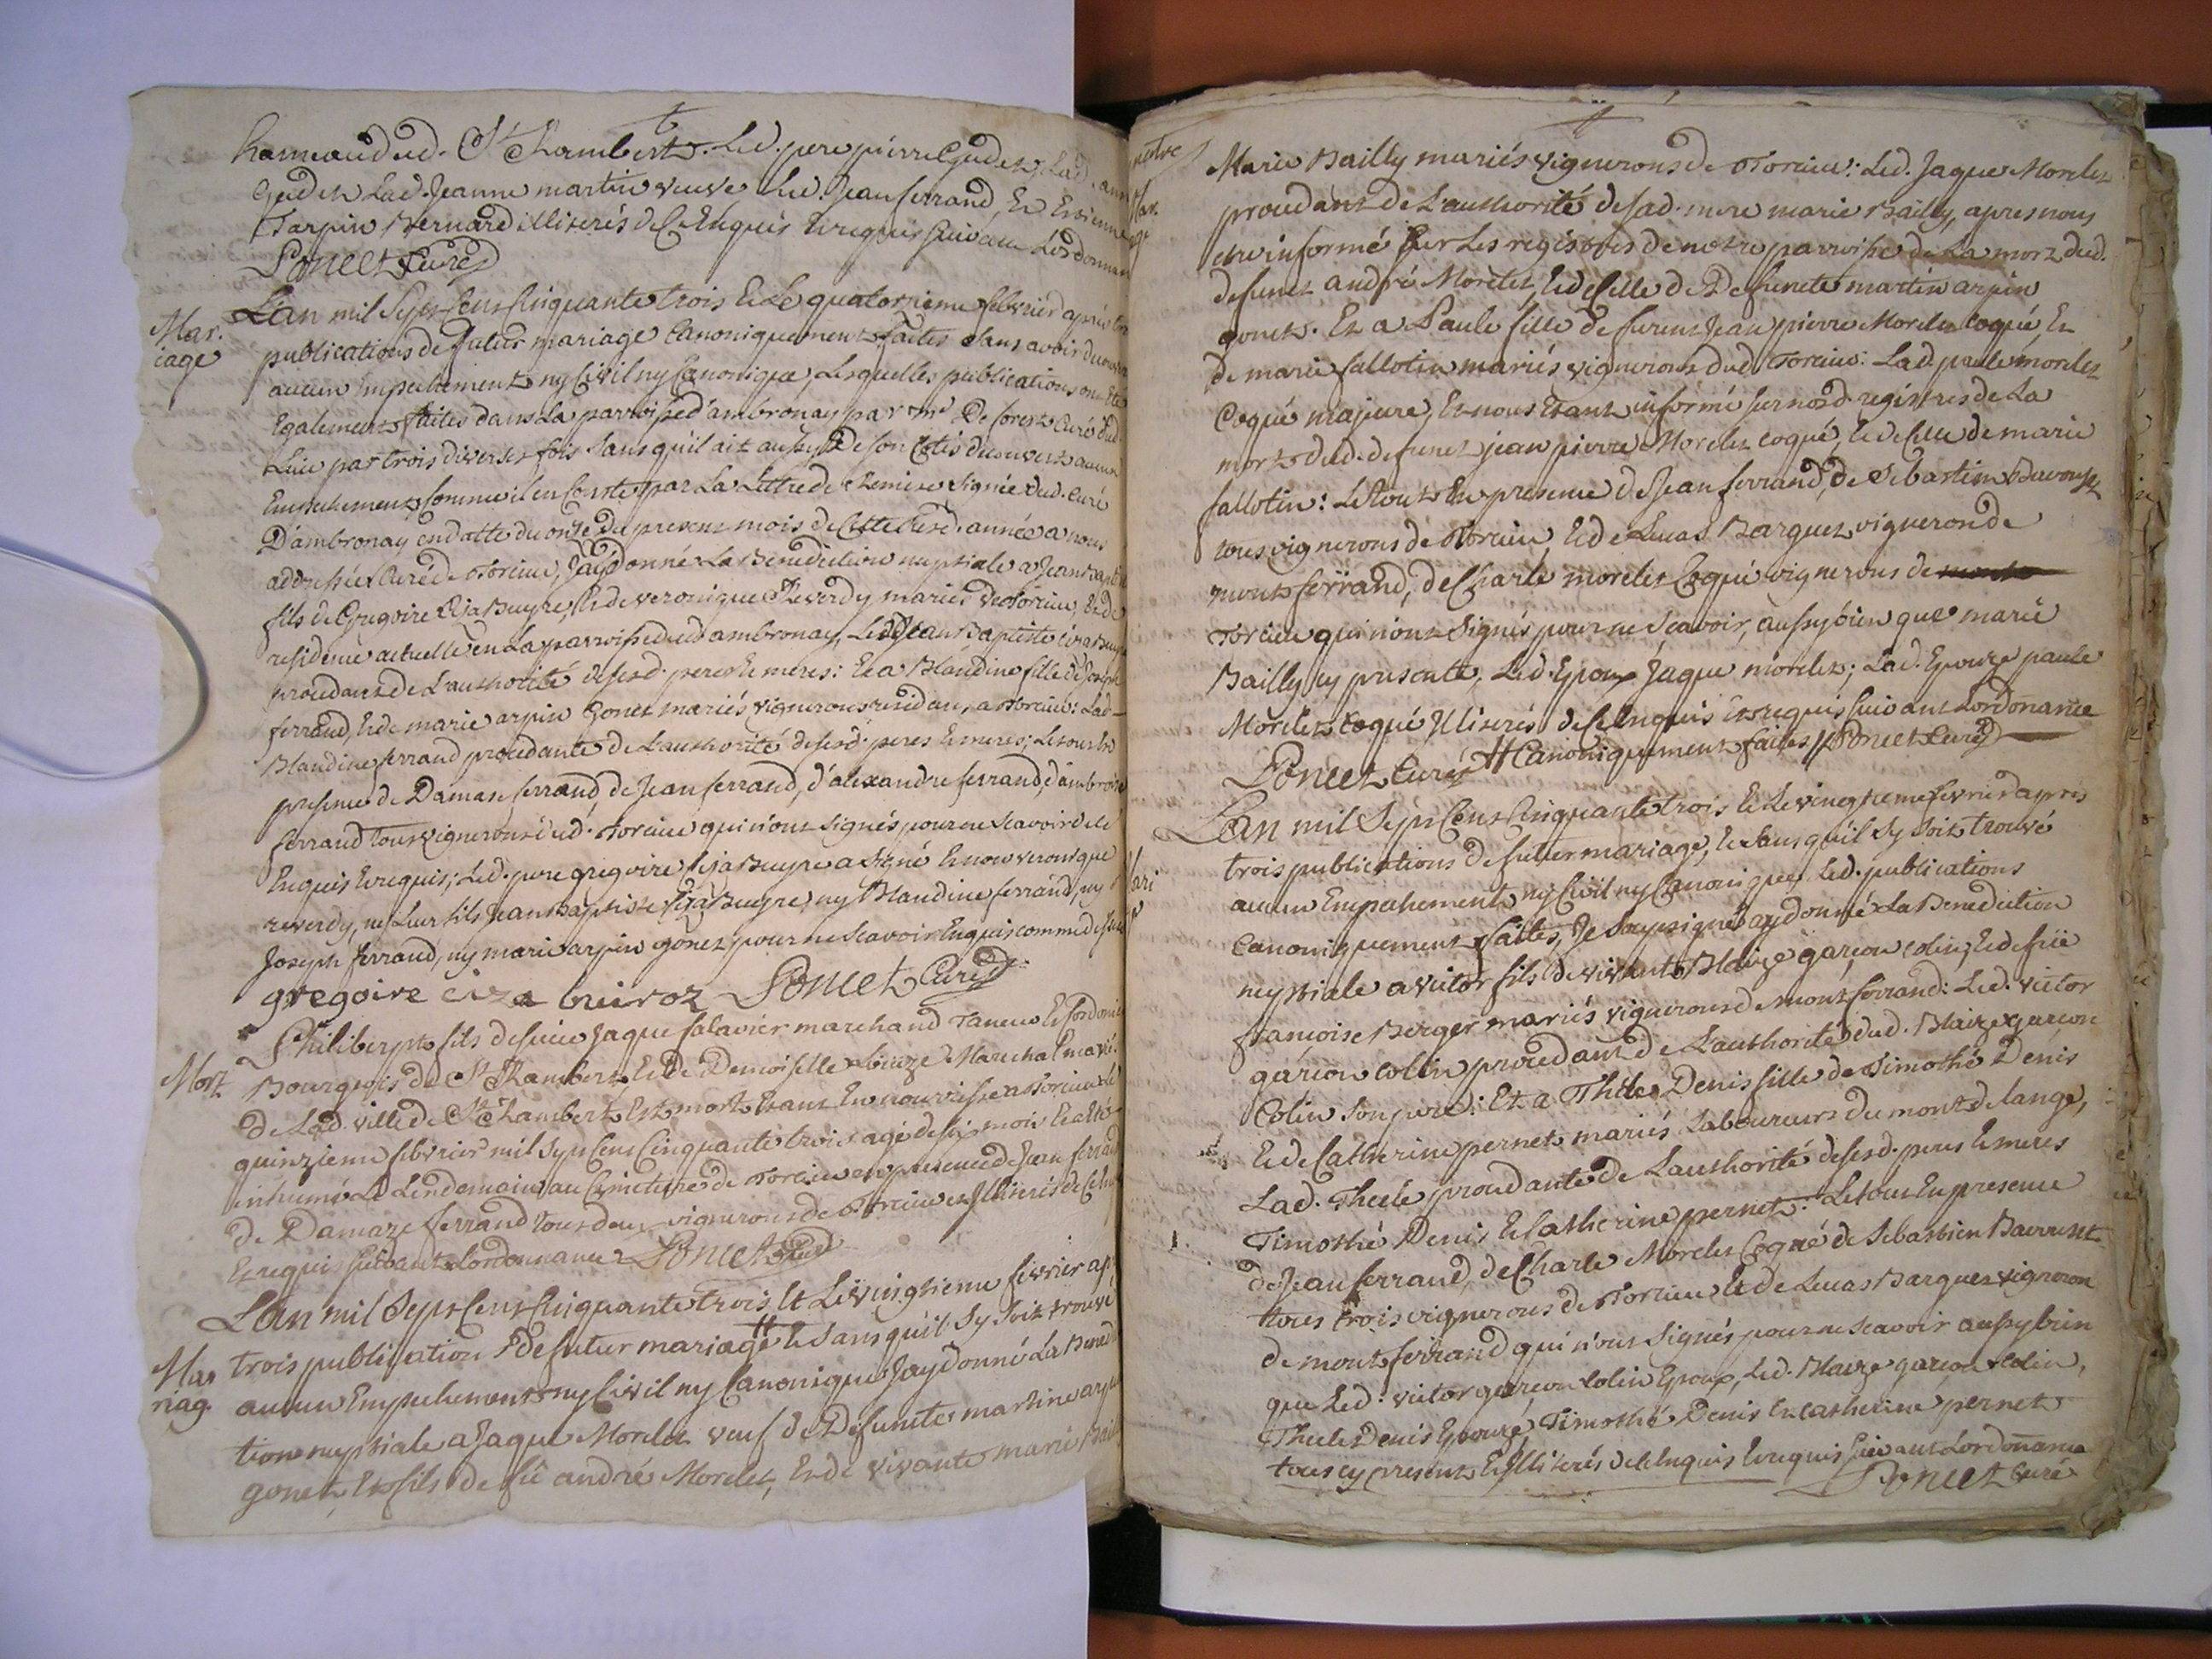 hameaud dud. St Rambert. Led. pere pierre Gudet, Lad. anne
Gudet Lad. Jeanne martin veuve Led. Jean ferrand, Et Etienne
Tarpin Bernard illiterés de ce Enquis Et requis suivant L'ordonnan
Poncet Curé
Mariage
L'an mil Sept Cent Cinquante trois Et Le quatorzieme febvrier apres trois
publications de futur mariage Canoniquement faites sans avoir decouvert
aucun Empechement ny Civil ny Canonique, Lesquelles publications ont Eté
Egalement faites dans La parroisse d'ambronay par mr De forest Curé dud.
Lieu par trois diverses fois Sans qu'il ait aussy De son Cotés decouvert aucun
Empechement, Comme il en Conste par La Lettre de Remise Signée dud. Curé
D'ambronay en datte du onze du present mois de Cette Pred. année a nous
addressée Curé de Torcieu, J'ay donné La Benediction nuptiale a Jean Baptiste
fils de Gregoire Cija Buyre, Et de veronique Reverdy mariés de Torcieu, Et de
residence actuelle en La parroisse dud ambronay, Led. Jean Baptiste Ciza Buyre
procedant de L'authorité desesd. peres Et meres: Et a Blandine fille de Joseph
ferrand, Et de marie arpin Gonet mariés vignerons residans a Torcieu: Lad.
Blandine ferrand procedante de L'authorité desesd. peres Et meres; Le tout En
presence de Damase ferrand, de Jean ferrand, d'alexandre ferrand d'ambroise
ferrand Tous vignerons dud. Torcieu qui n'ont signés pour ne Scavoir de ce
Enquis Et requis; Led. pere gregoire Cija Buyre a Signé Et non veronique
reverdy, ne Leur fils Jean Baptiste Cija Buyre, ny Blandine ferrand, ny
Joseph ferrand, ny marie arpin gonet pour ne Scavoir Enquis comme dessus
gregoire ciza buiroz Poncet Curé
Mort
Philiberpt fils de sieur Jaque Salavier marchand Taneur Et Cordonnier
Bourgeois de St Rambert Et de Demoiselle Marechal mariés
de Lad. ville de St Rambert Est mort Etant En nourrisse a Torcieu Le
quinzieme febvrier mil Sept Cent Cinquante trois agé de six mois Et a Eté
inhumé Le Lendemain au Cimetiere de Torcieu en presence de Jean ferrand
de Damaze ferrand tous deux vignerons de Torcieu Et Illiterés de ce Enquis
Et requis suivant L'ordonnance Poncet Curé
Mariag.
L'an mil Sept Cent Cinquante trois, Et Le vingtieme fevrier ap.
trois publication de futur mariage # Et Sans qu'il Sy Soit trouvé
aucun Empechement ny Civil ny Canonique J'ay donné La Bened
tion nuptiale a Jaque Morelet veuf de Defuncte martine arpin
gonet, Et fils de fû andré Morelet, Et de vivante marie Bail
Marie Bailly mariés vignerons de Torcieu: Led. Jaque Morelet
procedant de L'authorité de Sad. mere marie Bailly, apres nous
etre informé sur Les registres de notre parroisse de La mort dud.
defunct andré Morelet, Et de Celle de Defuncte martin arpin
gonet. Et a Paule fille de furent Jean pierre Morelet coqué, Et
de marie fallotin mariés vignerons dud Torcieu: Lad. paule morelet
Coqué majeure, Et nous Etant informé sur nosd. registres de La
mort dud. defunct jean pierre Morelet coqué, Et de Celle de marie
fallotin: Le tout En presence de Jean ferrand, de Sebastien
tous vignerons de Torcieu, Et de Lucas Barquet vigneron de
mont ferrand, de Charle morelet Coqué vignerons de
Torcieu qui n'ont Signés pour ne Scavoir, aussy bien que marie
Bailly cy presente, Led. Epoux Jaque morelet; Lad. Epouze paule
Morelet coqué Illiterés de ce Enquis Et requis suivant L'ordonance
Poncet Curé # Canoniquement faites // Poncet Curé
Mariage
L'an mil Sept Cent Cinquante trois Et Le vingtieme fevrier apres
trois publications de futur mariage, Et Sans qu'il Sy Soit trouvé
aucun Empechement ny Civil ny Canonique, Led. publications
Canoniquement faittes, Je Soussigné ay donné La Benediction
nuptiale a victor fils de vivant Blaize garçon colin, Et de
françoise Berger mariés vignerons de mont ferrand: Led. victor
garçon colin procedant de L'authorité dud. Blaize garçon
Colin Son pere: Et a Thecle Denis fille de Timothé Denis
Et de Catherine pernet mariés Laboureurs du mont de lange,
Lad. Thecle procedante de L'authorité desesd. peres Et meres
Timothé Denis Et Catherine pernet: Le tout En presence
de Jean ferrand, de Charle Morelet Coqué de Sebastien
tous trois vignerons de Torcieu Et de Lucas Barquet vigneron
de mont ferrand qui n'ont Signés pour ne Scavoir aussy bien
que Led: victor garçon colin Epoux, Led. Blaize garçon colin,
Thecle Denis Epouze, Timothé Denis Et catherine pernet
tous cy present Et Illiterés de ce Enquis Et requis suivant L'ordonnance
Poncet Curé